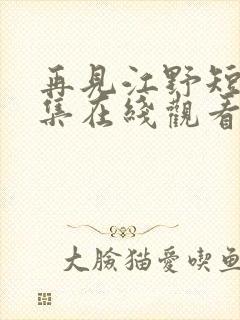 再見江野短
集在綫觀看
大臉猫愛喫魚